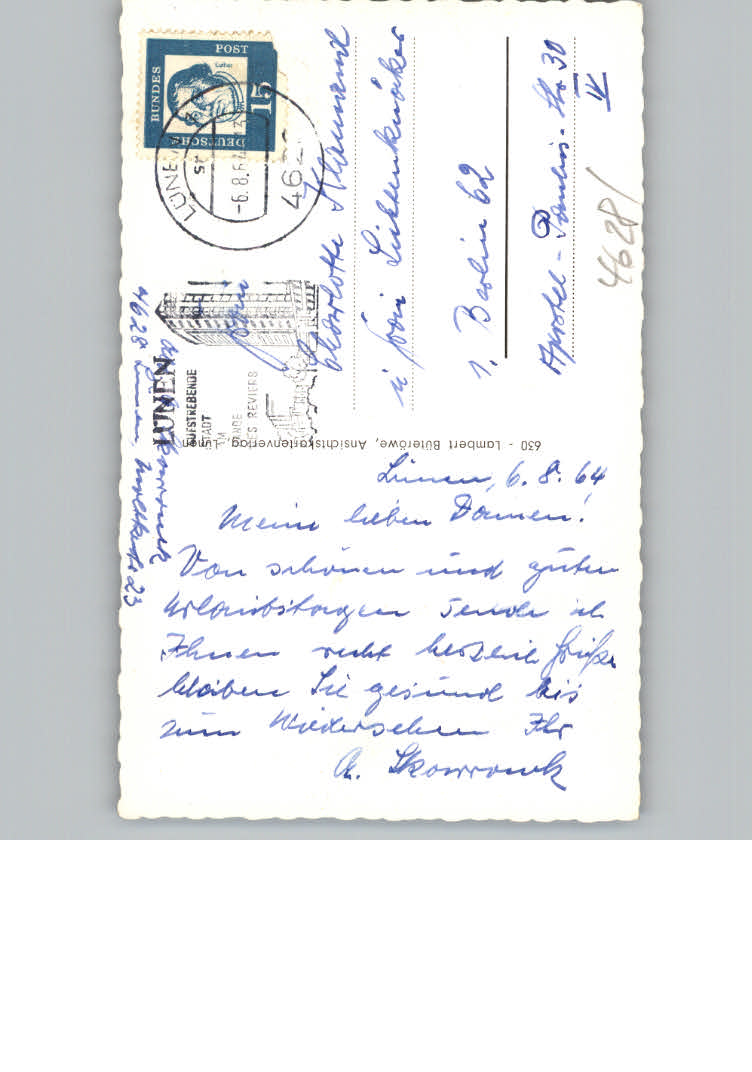 Lünen, 6. 8. 64
Meine lieben Damen!
Von schönen und guten
Urlaubstagen sende ich
Ihnen recht herzliche Grüße
bleiben Sie gesund bis
zum Wiedersehen Ihr
A. Skowronek
Charlotte
u. Frau
1. Berlin 62
Apostel-Paulus-Str 30
IV
4628/
Skowronek
4628 Lünen, 23
630 - Lambert Büterowe, Ansichtskartenverlag, Lünen
DEUTSCHE
BUNDES
POST
Luther
15
LÜNEN
-6.8.64
462
LÜNEN
AUFSTREBENDE
STADT
IM
ES REVIERS